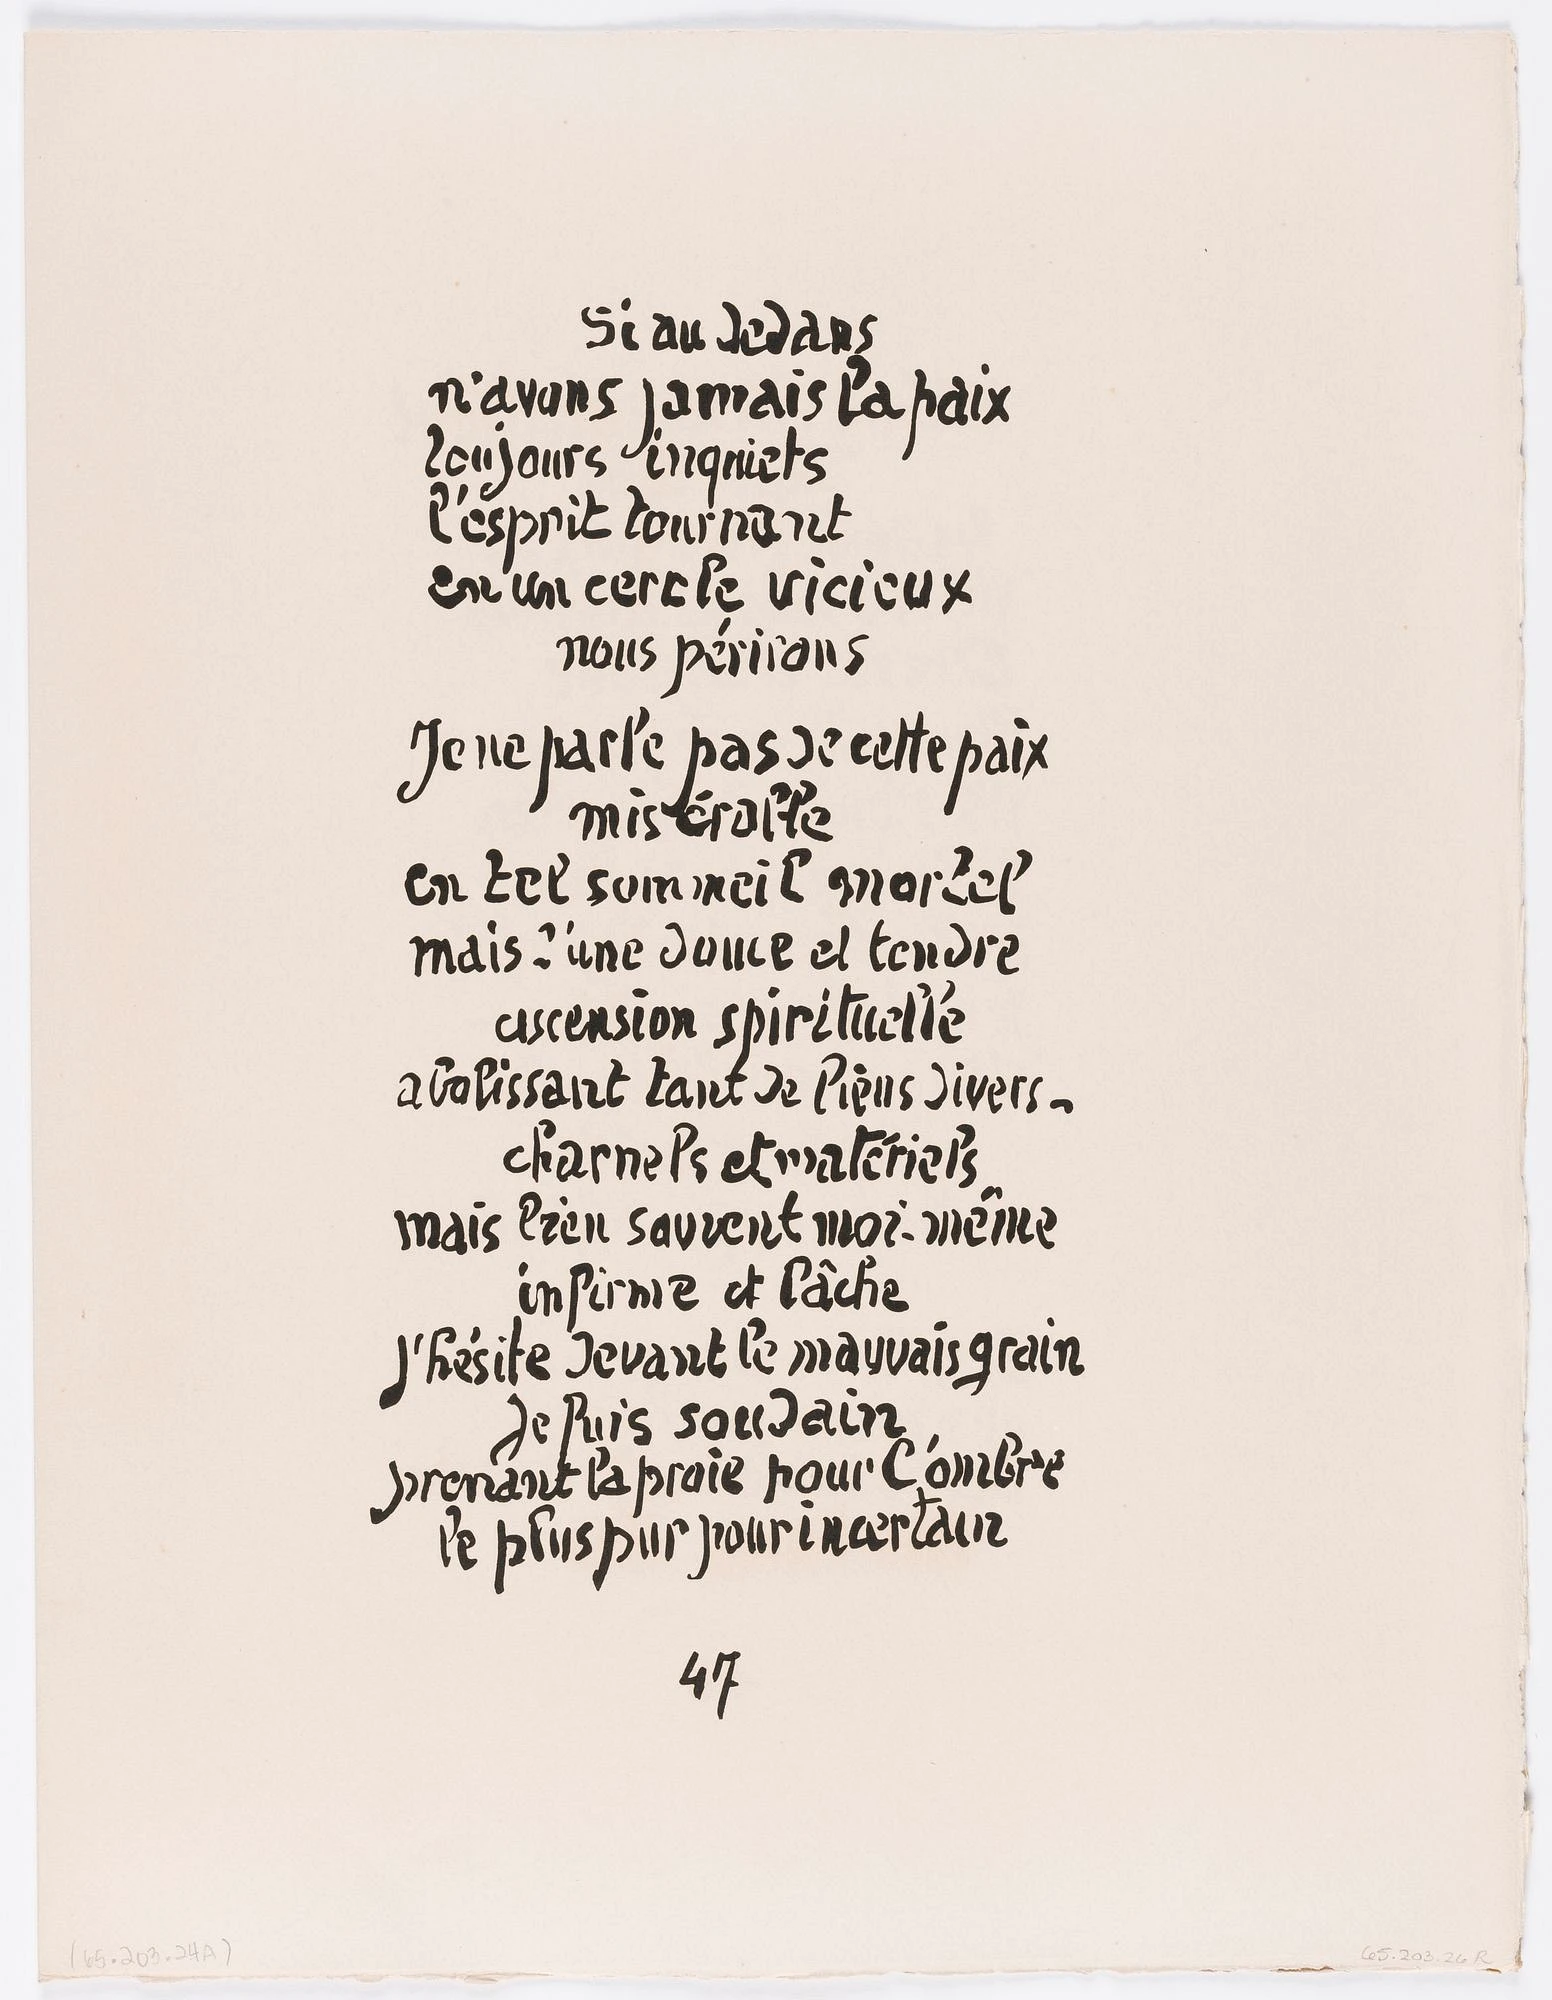 Si au dedans
n'avons jamais la paix
toujours inquiets
l'esprit tournant
en un cercle vicieux
nous périrons
Je ne parle pas de cette paix
misérable
en tel sommeil mortel
mais d'une douce et tendre
ascension spirituelle
abolissant tant de liens divers-
charnels et matériels
mais bien souvent moi-même
infirme et lâche
j'hésite devant le mauvais grain
Je fuis soudain
prenant la proie pour l'ombre
le plus pur pour incertain
47
(65.203.24A)
65.203.26R